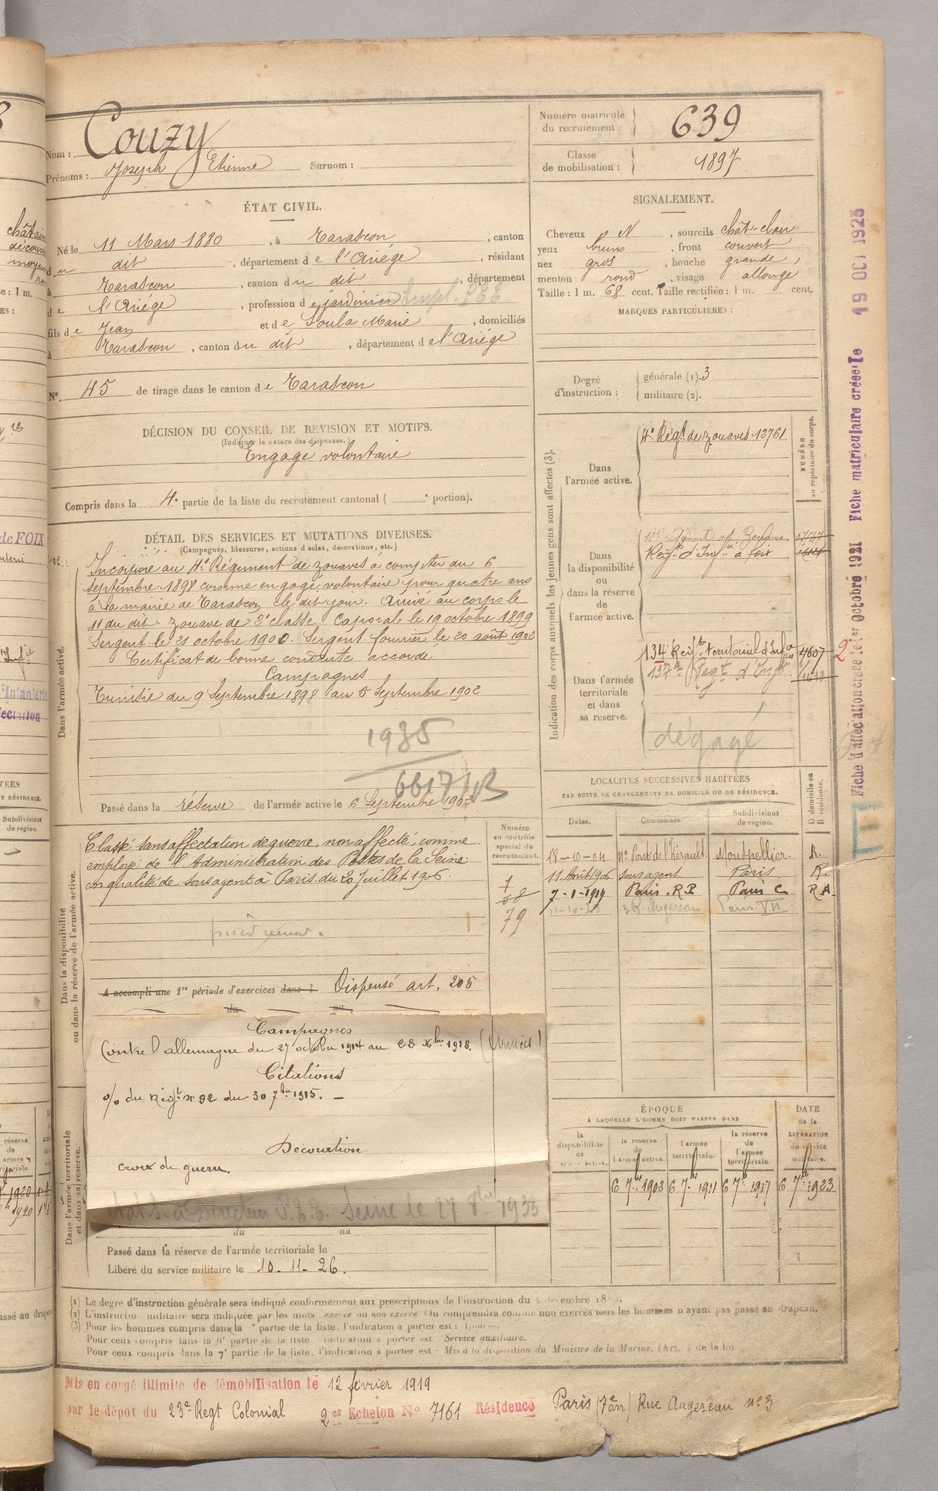 Nom : Couzy
Prénoms : Joseph Etienne Surnom :
Numéro matricule du recrutement : 639
Classe de mobilisation : 1897
ÉTAT CIVIL.
Né le 11 Mars 1880, à Tarascon, canton
du dit, département de l'Ariége, résidant
à Tarascon, canton du dit, département
de l'Ariége, profession de jardinier Empl. P.T.T.
fils de Jean et de Soula Marie, domiciliés
à Tarascon, canton du dit, département de l'Ariége
N° 45 de tirage dans le canton de Tarascon
SIGNALEMENT.
Cheveux N, sourcils chât-clair
yeux bruns, front couvert
nez gros, bouche grande,
menton rond, visage allongé
Taille : 1 m. 68 cent. Taille rectifiée : 1 m. cent.
MARQUES PARTICULIÈRES :
Degré d'instruction : générale (1). 3
militaire (2).
DÉCISION DU CONSEIL DE REVISION ET MOTIFS.
(Indiquer la nature des dispenses.)
Engagé volontaire
Compris dans la 4e partie de la liste du recrutement cantonal ( e portion).
DÉTAIL DES SERVICES ET MUTATIONS DIVERSES.
(Campagnes, blessures, actions d'éclat, décorations, etc.)
Dans l'armée active.
Incorporé au 4e Régiment de zouaves à compter du 6
septembre 1898 comme engagé volontaire pour quatre ans
à la mairie de Tarascon le dit jour. Arrivé au corps le
11 du dit. zouave de 2e classe. Caporal le 19 octobre 1899
Sergent le 21 octobre 1900. Sergent fourrier le 20 août 1902
Certificat de bonne conduite accordé
Campagnes
Tunisie du 9 Septembre 1898 au 5 Septembre 1902
1935
6617/B
Passé dans la réserve de l'armée active le 6 Septembre 1902
Indication des corps auxquels les jeunes gens sont affectés (3).
NUMÉRO au répertoire du corps.
Dans l'armée active.
4e Régt de zouaves 13761
Dans la disponibilité ou dans la réserve de l'armée active.
Régt d'Infie à Foix
Dans l'armée territoriale et dans sa réserve.
134 Regt territorial d'Infie 4607
137e Regt d'Infie
dégagé
2
LOCALITÉS SUCCESSIVES HABITÉES
PAR SUITE DE CHANGEMENTS DE DOMICILE OU DE RÉSIDENCE.
Dates. Communes. Subdivisions de région. D domicile ou R résidence.
18-10-04 Montpellier. R.
11 Août 1906 sous agent Paris R.
7-1-1919 Paris. R.P. Paris C. R A.
3 R. Augereau Paris VII
Dans la disponibilité ou dans la réserve de l'armée active.
Numéro au contrôle spécial du recrutement.
Classé sans affectation de guerre, non affecté, comme
employé de l'Administration des Postes de la Seine
en qualité de sous agent à Paris du 20 Juillet 1906.
79
A accompli une 1re période d'exercices dans l Dispensé art. 205
du au
Campagnes
Contre l'allemagne du 27 octobre 1914 au 28 Xbre 1918. (Armées)
Citations
O/ du Régt n° 92 du 30 7bre 1915. —
Décoration
croix de guerre
P.T.T. Seine le 27 8bre 1933
du au
Dans l'armée territoriale et dans sa réserve.
Passé dans la réserve de l'armée territoriale le
Libéré du service militaire le 10-11-26.
ÉPOQUE
À LAQUELLE L'HOMME DOIT PASSER DANS
la disponibilité la réserve de l'armée active. l'armée territoriale. la réserve de l'armée territoriale.
DATE de la LIBÉRATION du service militaire.
6 7bre 1902 6 7bre 1911 6 7bre 1917 6 7bre 1923
(1) Le degré d'instruction générale sera indiqué conformément aux prescriptions de l'instruction du
(2) L'instruction militaire sera indiquée par les mots : exercé ou non exercé. On comprendra comme non exercés tous les hommes n'ayant pas passé au drapeau.
(3) Pour les hommes compris dans la partie de la liste, l'indication à porter est :
Pour ceux compris dans la liste l'indication à porter est Service auxiliaire.
Pour ceux compris dans la 7e partie de la liste, l'indication à porter est : Mis à la disposition du Ministre de la Marine.
Mis en congé illimité de démobilisation le 12 février 1919
par le dépôt du 23e Regt Colonial 2er Echelon N° 7161 Résidence Paris (7e arr) Rue Augereau n° 3
Fiche d'affectation créée le 1er Octobre 1921 Fiche matriculaire créée le 19 OCT 1925